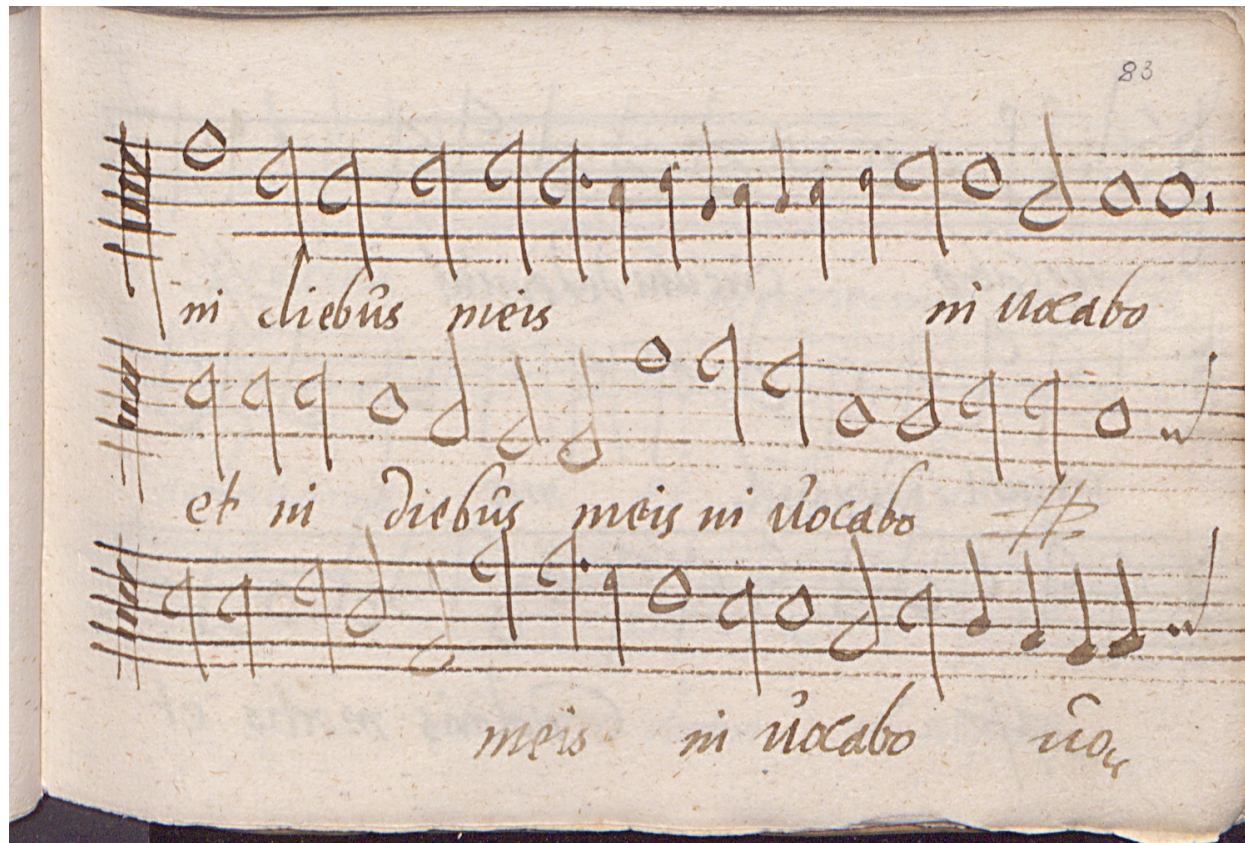 83
ni diebus meis ni uocabo
et ni diebus meis ni uocabo
meis ni uocabo uo